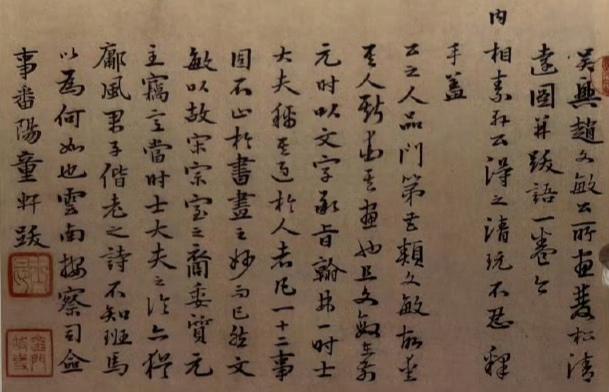 吳興趙文敏公所畫雙松清
遠圖并跋語一卷今
內相素菴公得之清玩不忍釋
手蓋
公之人品門第甚類文敏故重
其人斯重其畫也且文敏在前
元時以文字承旨翰林一時士
大夫稱其過於人者凡一十二事
固不止於書畫之妙而已然文
敏以故宋宗室之裔委質元
主竊意當時士大夫之論亦猶
鄘風君子偕老之詩不知班馬
以為何如也雲南按察司僉
事番陽童軒跋